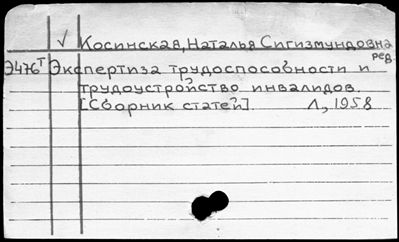 √ Косинская, Наталья Сигизмундовна
ред.
Э476т Экспертиза трудоспособности и
трудоустройство инвалидов.
[Сборник статей]. Л., 1958